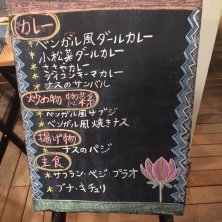 カレー
* ベンガル風ダールカレー
* 小松菜ダールカレー
* ささやカレー
* ダイコンキーマカレー
* ナスのサンバル
炒め物 惣菜
* ベンガル風サブジ
* ベンガル風焼きナス
揚げ物
* ナスのパジ
主食
* サフラン・ベジ・プラオ
* プナ・キチュリ